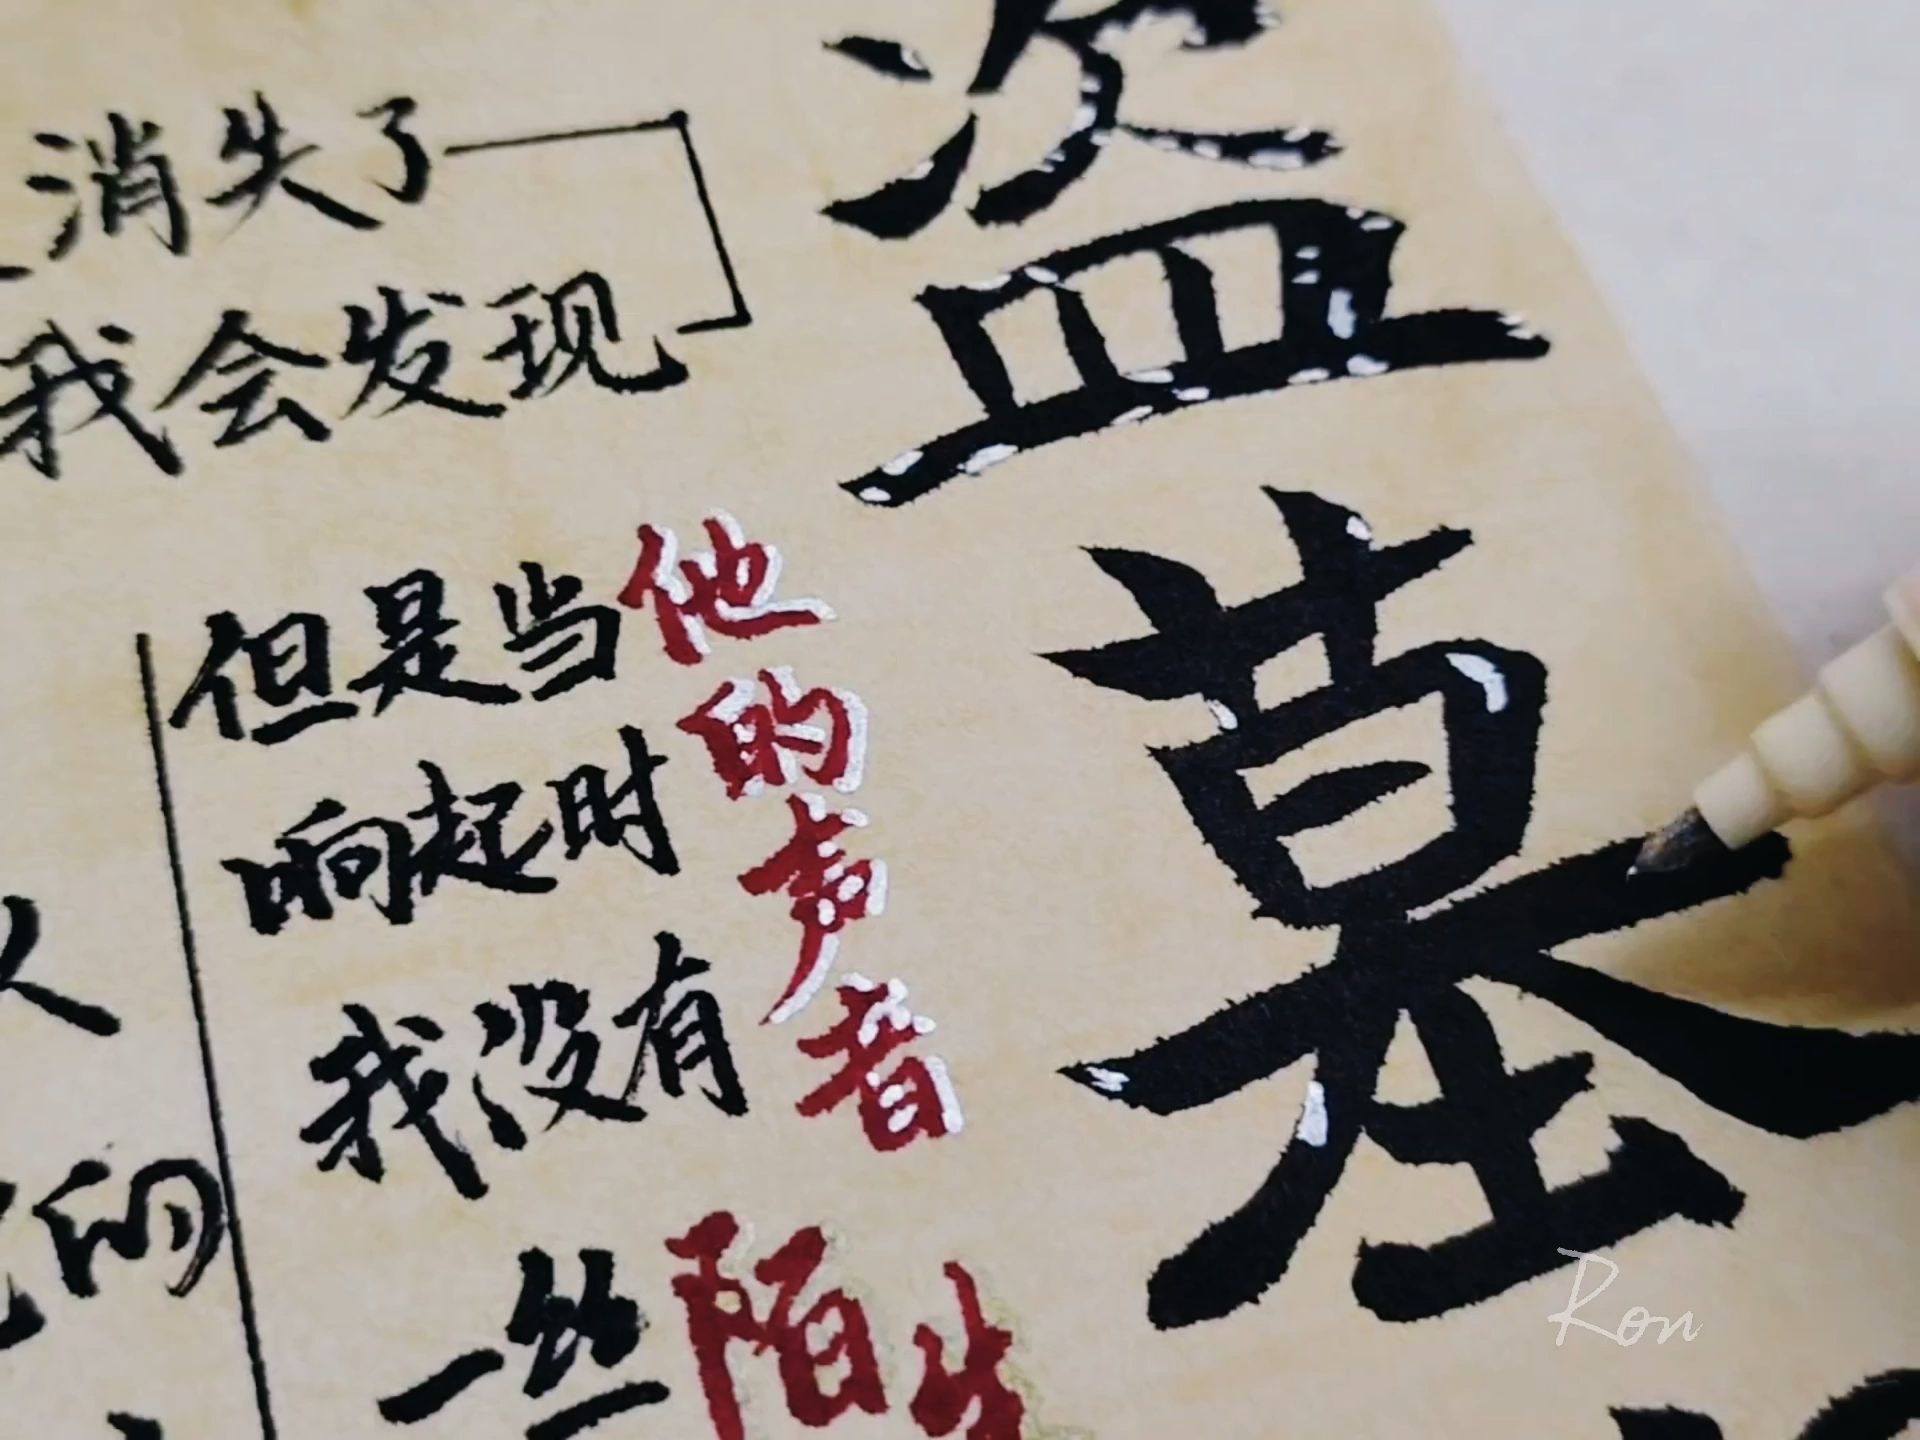 消失了
我会发现
但是当他的声音
响起时
我没有
一丝陌生
人
的
盗墓
Ron